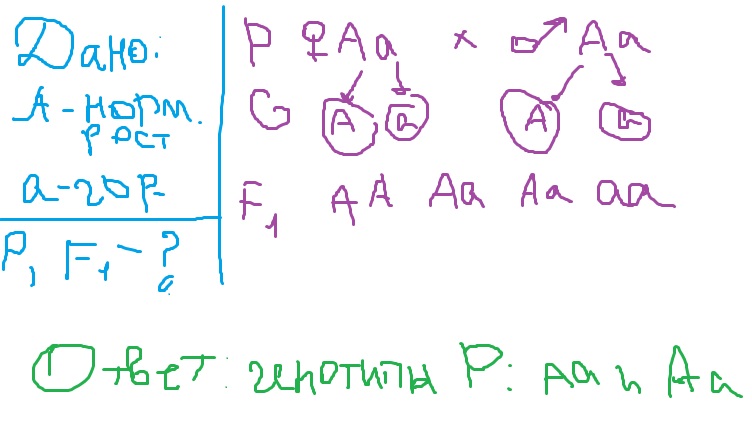 Дано:
A - норм.
рост
a - гор
P, F1 - ?
P ♀Aa × ♂Aa
G A a A a
F1 AA Aa Aa aa
Ответ: генотипы P: Aa и Aa